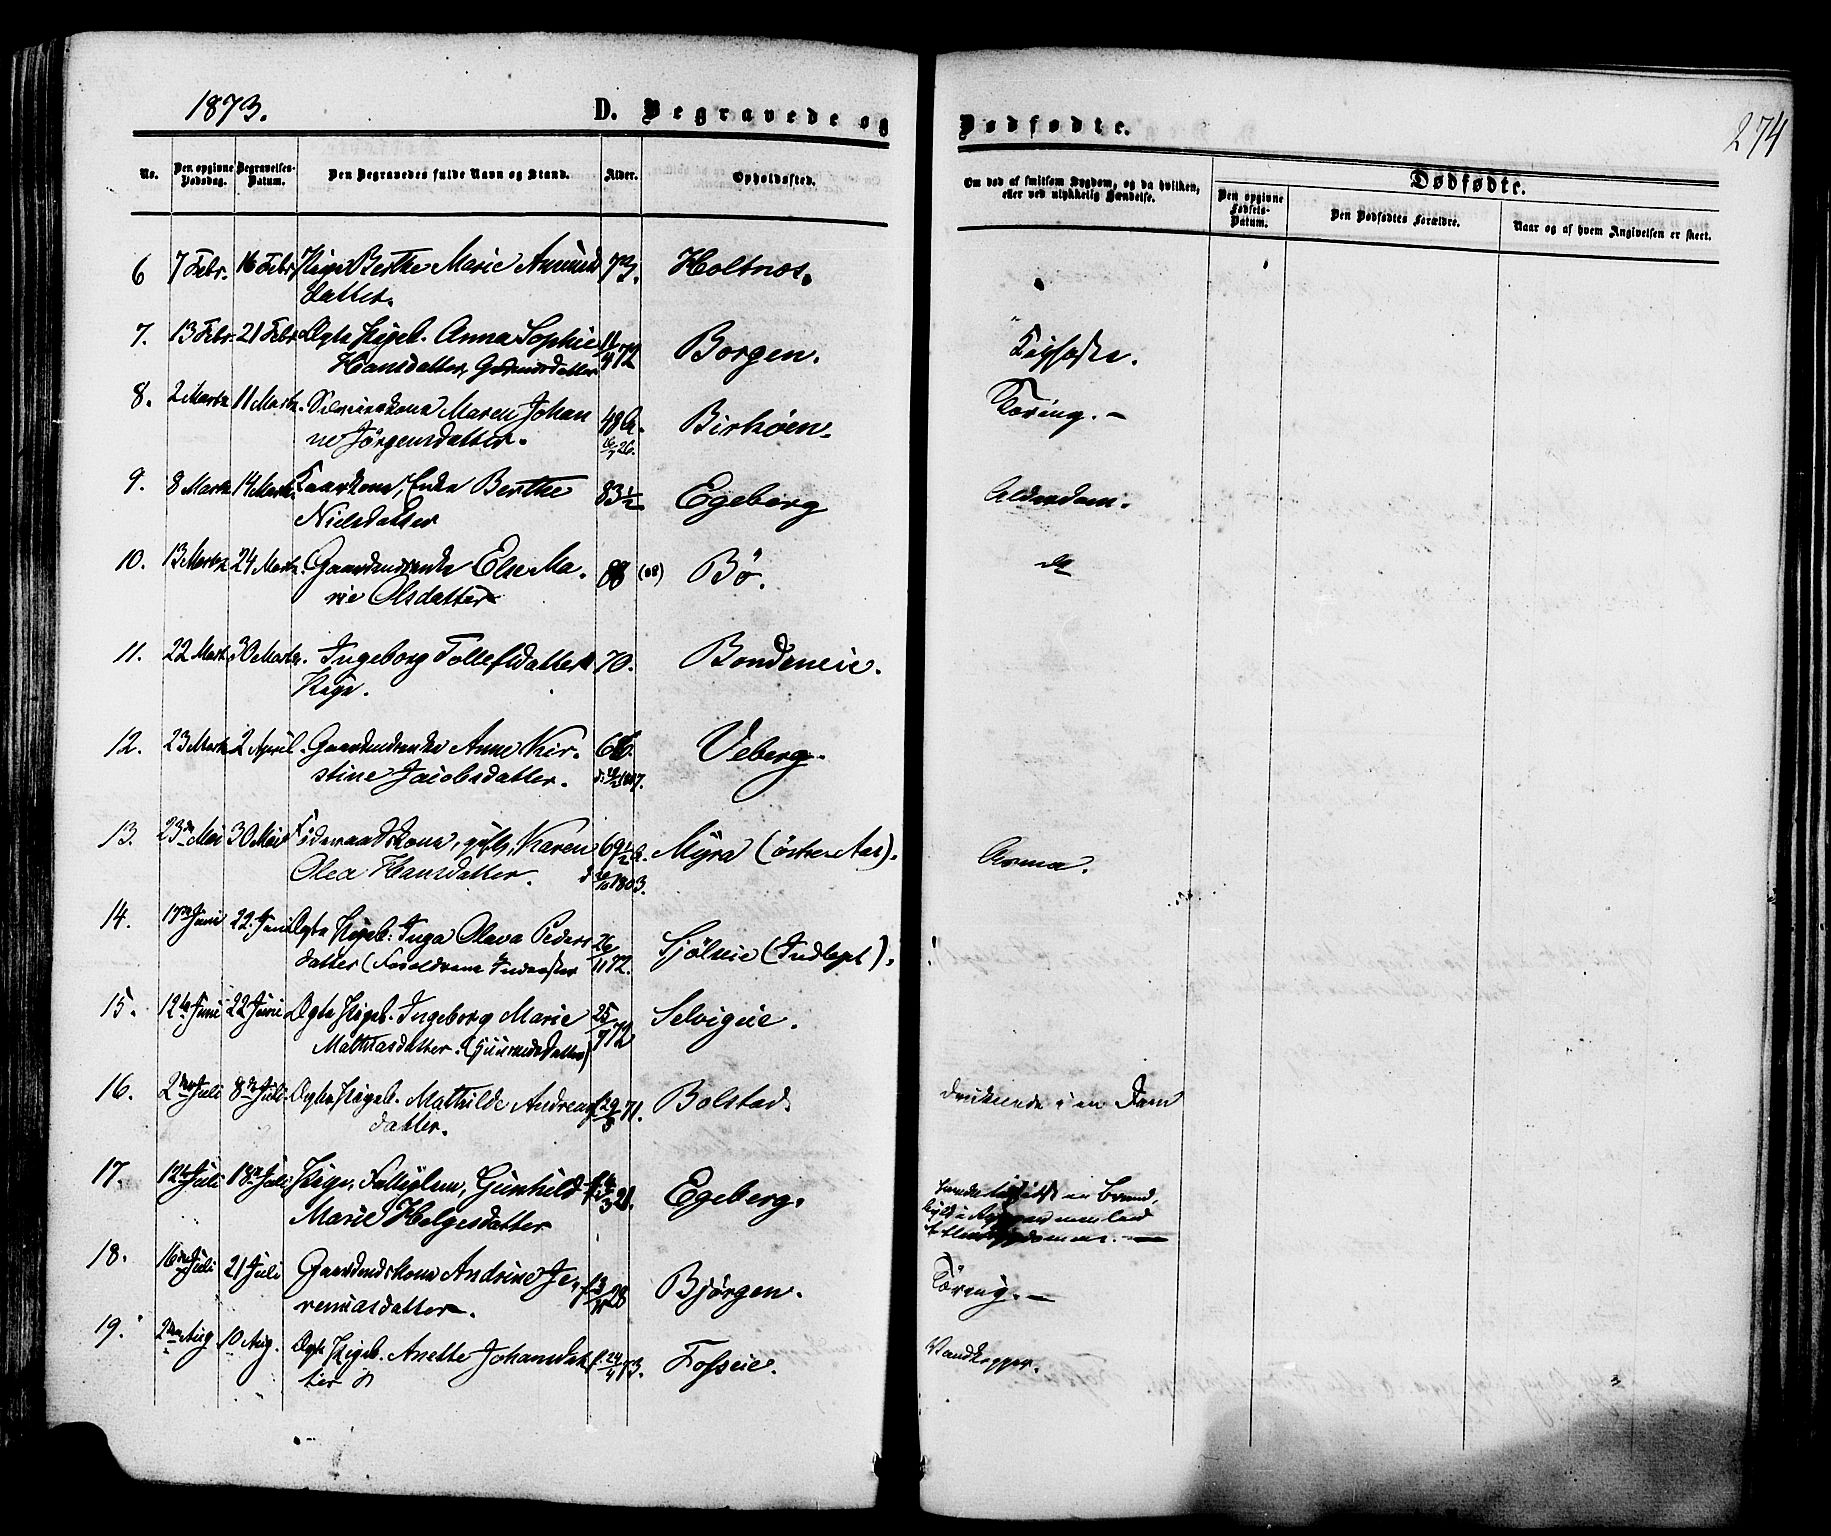 1873.
D. Begravede og Dødfødte.
274
No.
Den opgivne Dødsdag.
Begravelses-Datum.
Den Begravedes fulde Navn og Stand.
Alder.
Opholdssted.
Om død af smitsom Sygdom, og da hvilken,
eller ved ulykkelig Hændelse.
Dødfødte.
Den opgivne Fødsels-Datum.
Den Dødfødtes Forældre.
Naar og af hvem Angivelsen er skeet.
6 7 Febr. 16 Febr. Pige Berthe Marie Amund 73. Holtnæs.
datter.
7. 13 Febr. 21 Febr. Ægte Pigeb. Anna Sophie 11/4 72 Borgen.
Hansdatter,
8. 2 Marts 11 Marts. Maren Johan 48 Birhøen. Tæring. —
ne Jörgensdatter. 26.
9. 8 Marts 14 Marts Kaarkone, Enke Berthe 83 1/2 Egeberg Alderdom.
Nielsdatter
10. 13 Marts 24 Marts. Gaardmdsenke Else Ma- 88 (88) Bö. do
rie Olsdatter
11. 22 Marts 30 Marts. Ingeborg Tollefsdatter 70. Bondeneie.
Pige.
12. 23 Marts 2 April. Gaardmdsenke Anne Kir- Veberg.
stine Jacobsdatter. 1807.
13. 23de Mai 30 Mai Föderaadskone, gift, Karen 69 1/2 Myra (östre Aas).
Olea Hansdatter. 1803.
14. 17de Juni 22. Juni Ægte Pigeb. Inga Olava Peders 26/11 72. Sjölneie (Indlagt).
datter (Forældrene
15. 12te Juni 22 Juni Ægte Pigeb. Ingeborg Marie 25/7 72 Selvigeie.
Mathiasdatter.
16. 2den Juli 8de Juli. Ægte Pigeb. Mathilde Andreas 29/3 71. Bolstad. druknede i en Dam
datter.
17. 12te Juli 18de Juli Pige, Fattiglem, Gunhild 21. Egeberg.
Marie Helgesdatter
18. 16de Juli 21 Juli Gaardmdskone Andrine Je- 28 Björgen. Tæring. —
remiasdatter.
19. 2den Aug 10 Aug. Ægte Pigeb. Anette Johansdat f. 24/4 73. Fosseie. Vandkopper.
ter